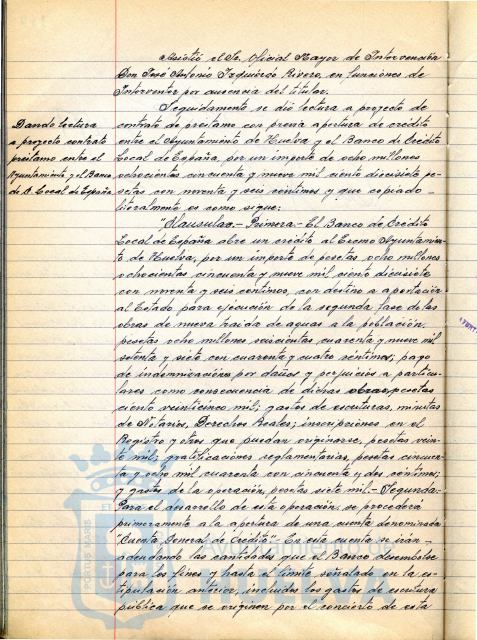 Asistió el Sr. Oficial Mayor de Intervención
Don José Antonio Izquierdo Rivero, en funciones de
Interventor por ausencia del titular.
Seguidamente se dió lectura a proyecto de
contrato de préstamo con previa apertura de crédito
entre el Ayuntamiento de Huelva y el Banco de Crédito
Local de España, por un importe de ocho millones
ochocientas cincuenta y nueve mil ciento diecisiete pe-
setas con noventa y seis céntimos y que copiado
literalmente es como sigue:
Dando lectura
a proyecto contrato
préstamo entre el
Ayuntamiento y el Banco
de C. Local de España.
"Clausulas.- Primera.- El Banco de Crédito
Local de España abre un crédito al Excmo Ayuntamien-
to de Huelva, por un importe de pesetas ocho millones
ochocientas cincuenta y nueve mil ciento diecisiete
con noventa y seis céntimos, con destino a aportación
al Estado para ejecución de la segunda fase de las
obras de nueva traida de aguas a la población,
pesetas ocho millones seiscientas cuarenta y nueve mil
setenta y siete con cuarenta y cuatro céntimos; pago
de indemnizaciones por daños y perjuicios a particu-
lares como consecuencia de dichas obras, pesetas
ciento veinticinco mil; gastos de escrituras, minutas
de Notarios, Derechos Reales; inscripciones en el
Registro y otros que puedan originarse, pesetas vein-
te mil; gratificaciones reglamentarias, pesetas cincuen-
ta y ocho mil cuarenta con cincuenta y dos céntimos;
y gastos de la operación, pesetas siete mil.- Segunda.-
Para el desarrollo de esta operación se procederá
primeramente a la apertura de una cuenta denominada
"Cuenta General de Crédito".- En esta cuenta se irán
adeudando las cantidades que el Banco desembolse
para los fines y hasta el límite señalado en la es-
tipulación anterior, incluidos los gastos de escritura
pública que se originen por el concierto de esta
PORTUS MARIS
ET